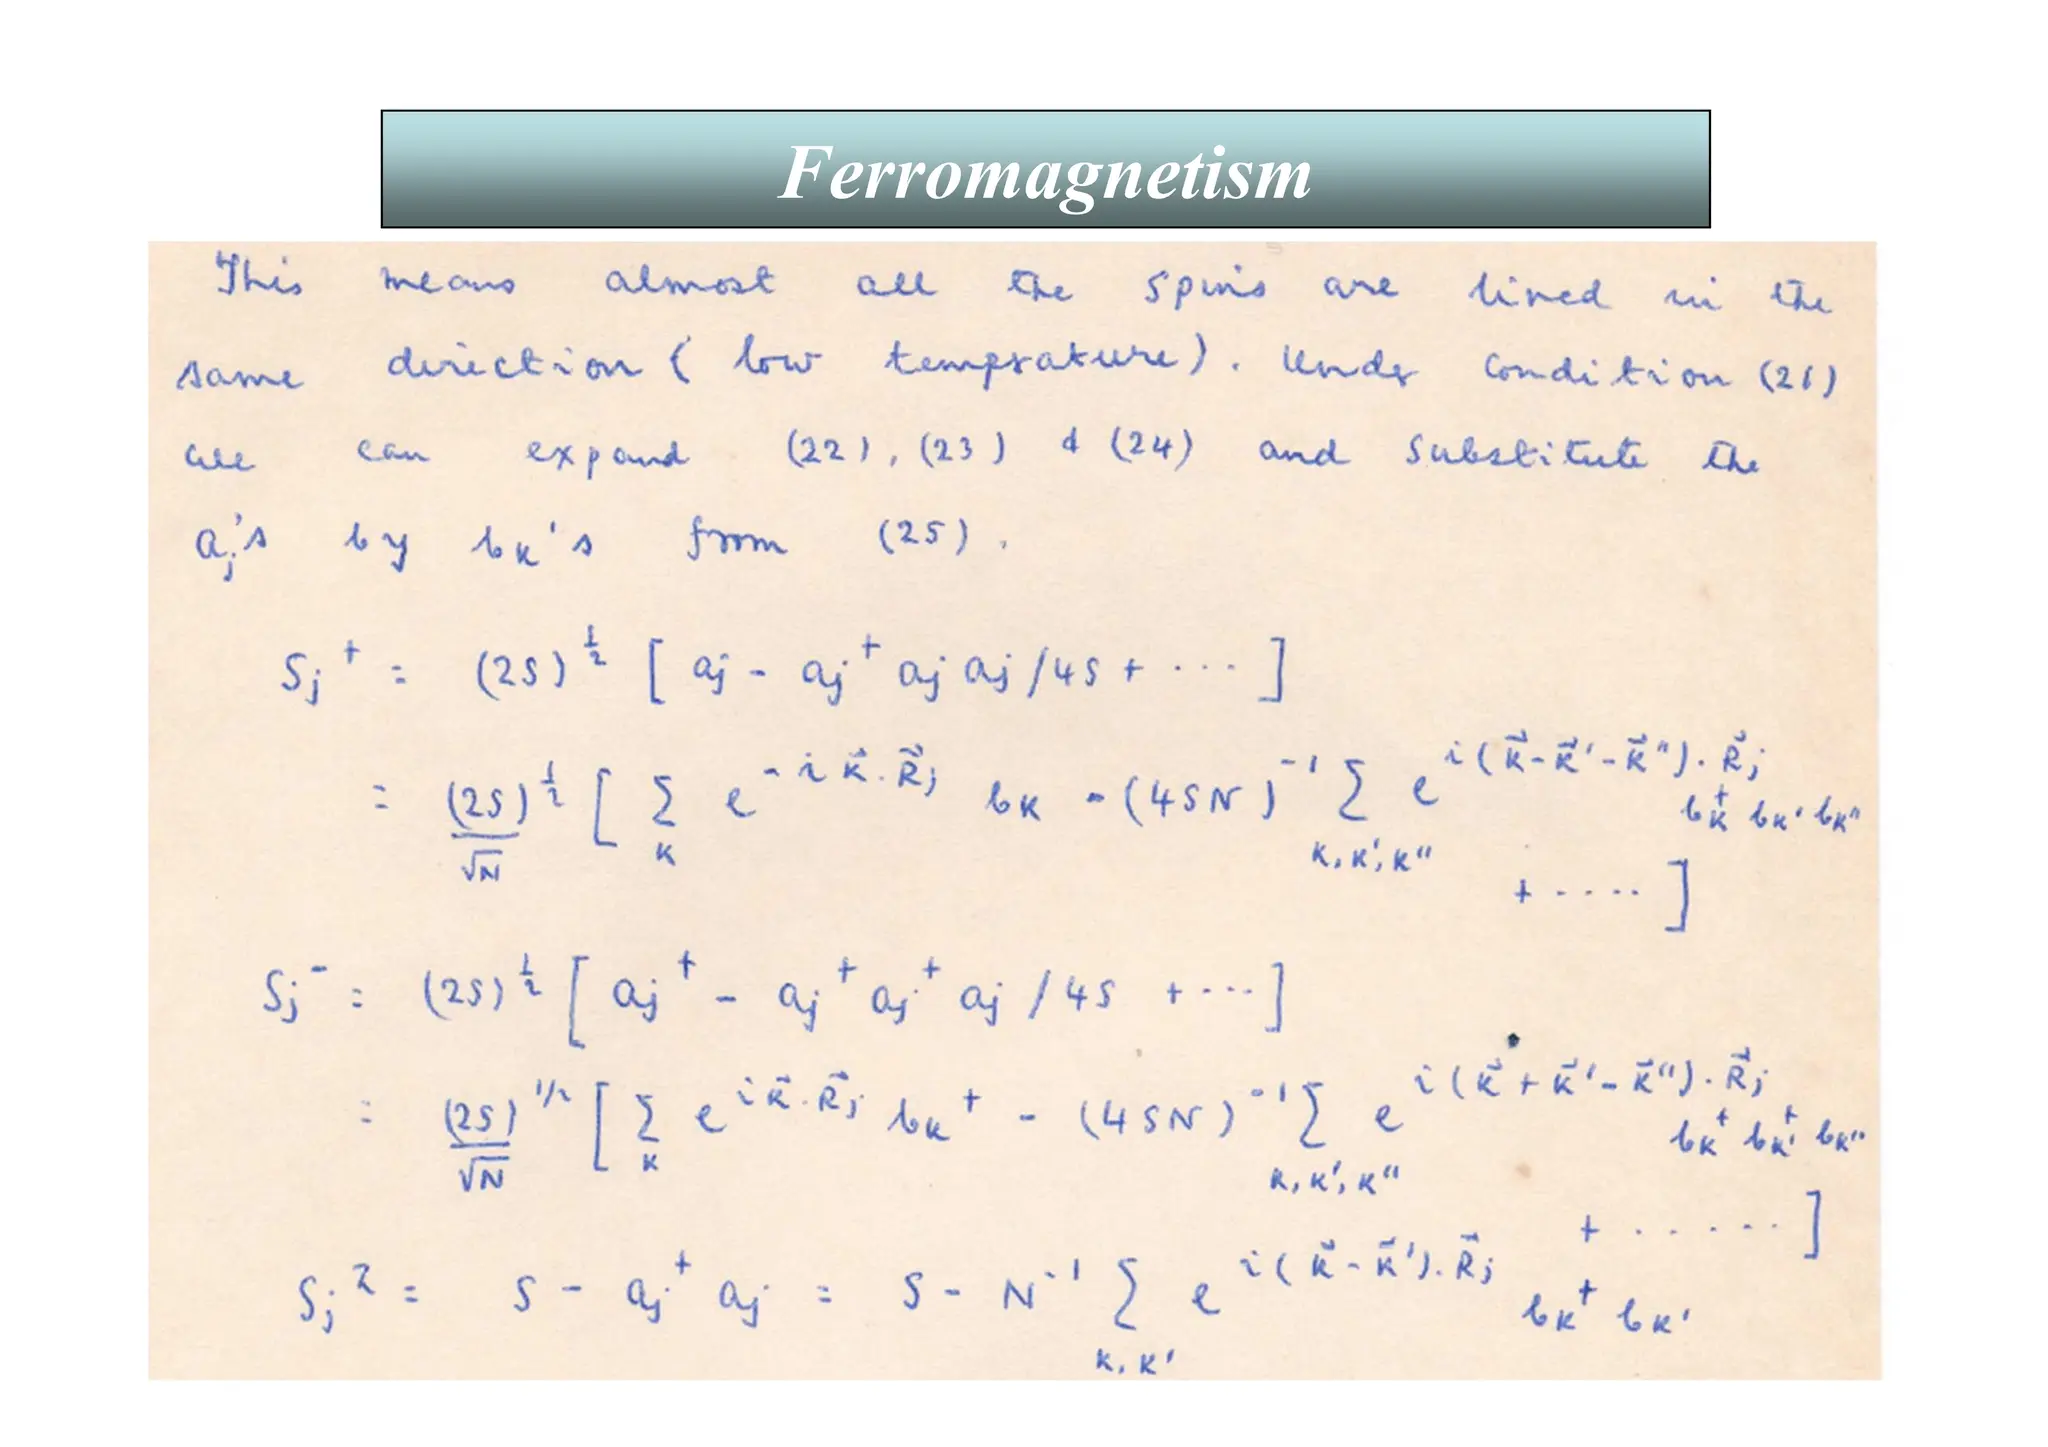 Ferromagnetism
This means almost all the spins are lined in the
same direction ( low temprature). Under Condition (26)
we can expand (22), (23) & (24) and Substitute the
aⱼ's by bₖ's from (25).
Sⱼ⁺ = (2S)^½ [ aⱼ - aⱼ⁺ aⱼ aⱼ /4S + ···· ]
= (2S)^½/√N [ Σ_K e^{-i K⃗·R⃗ⱼ} b_K - (4SN)⁻¹ Σ_{K,K',K''} e^{i(K⃗-K⃗'-K⃗'')·R⃗ⱼ} b_K⁺ b_K' b_K''
+ ····· ]
Sⱼ⁻ = (2S)^½ [ aⱼ⁺ - aⱼ⁺ aⱼ⁺ aⱼ / 4S + ···· ]
= (2S)^{1/2}/√N [ Σ_K e^{i K⃗·R⃗ⱼ} b_K⁺ - (4SN)⁻¹ Σ_{K,K',K''} e^{i(K⃗+K⃗'-K⃗'')·R⃗ⱼ} b_K⁺ b_K'⁺ b_K''
+ ······ ]
Sⱼᶻ = S - aⱼ⁺ aⱼ = S - N⁻¹ Σ_{K,K'} e^{i(K⃗-K⃗')·R⃗ⱼ} b_K⁺ b_K'